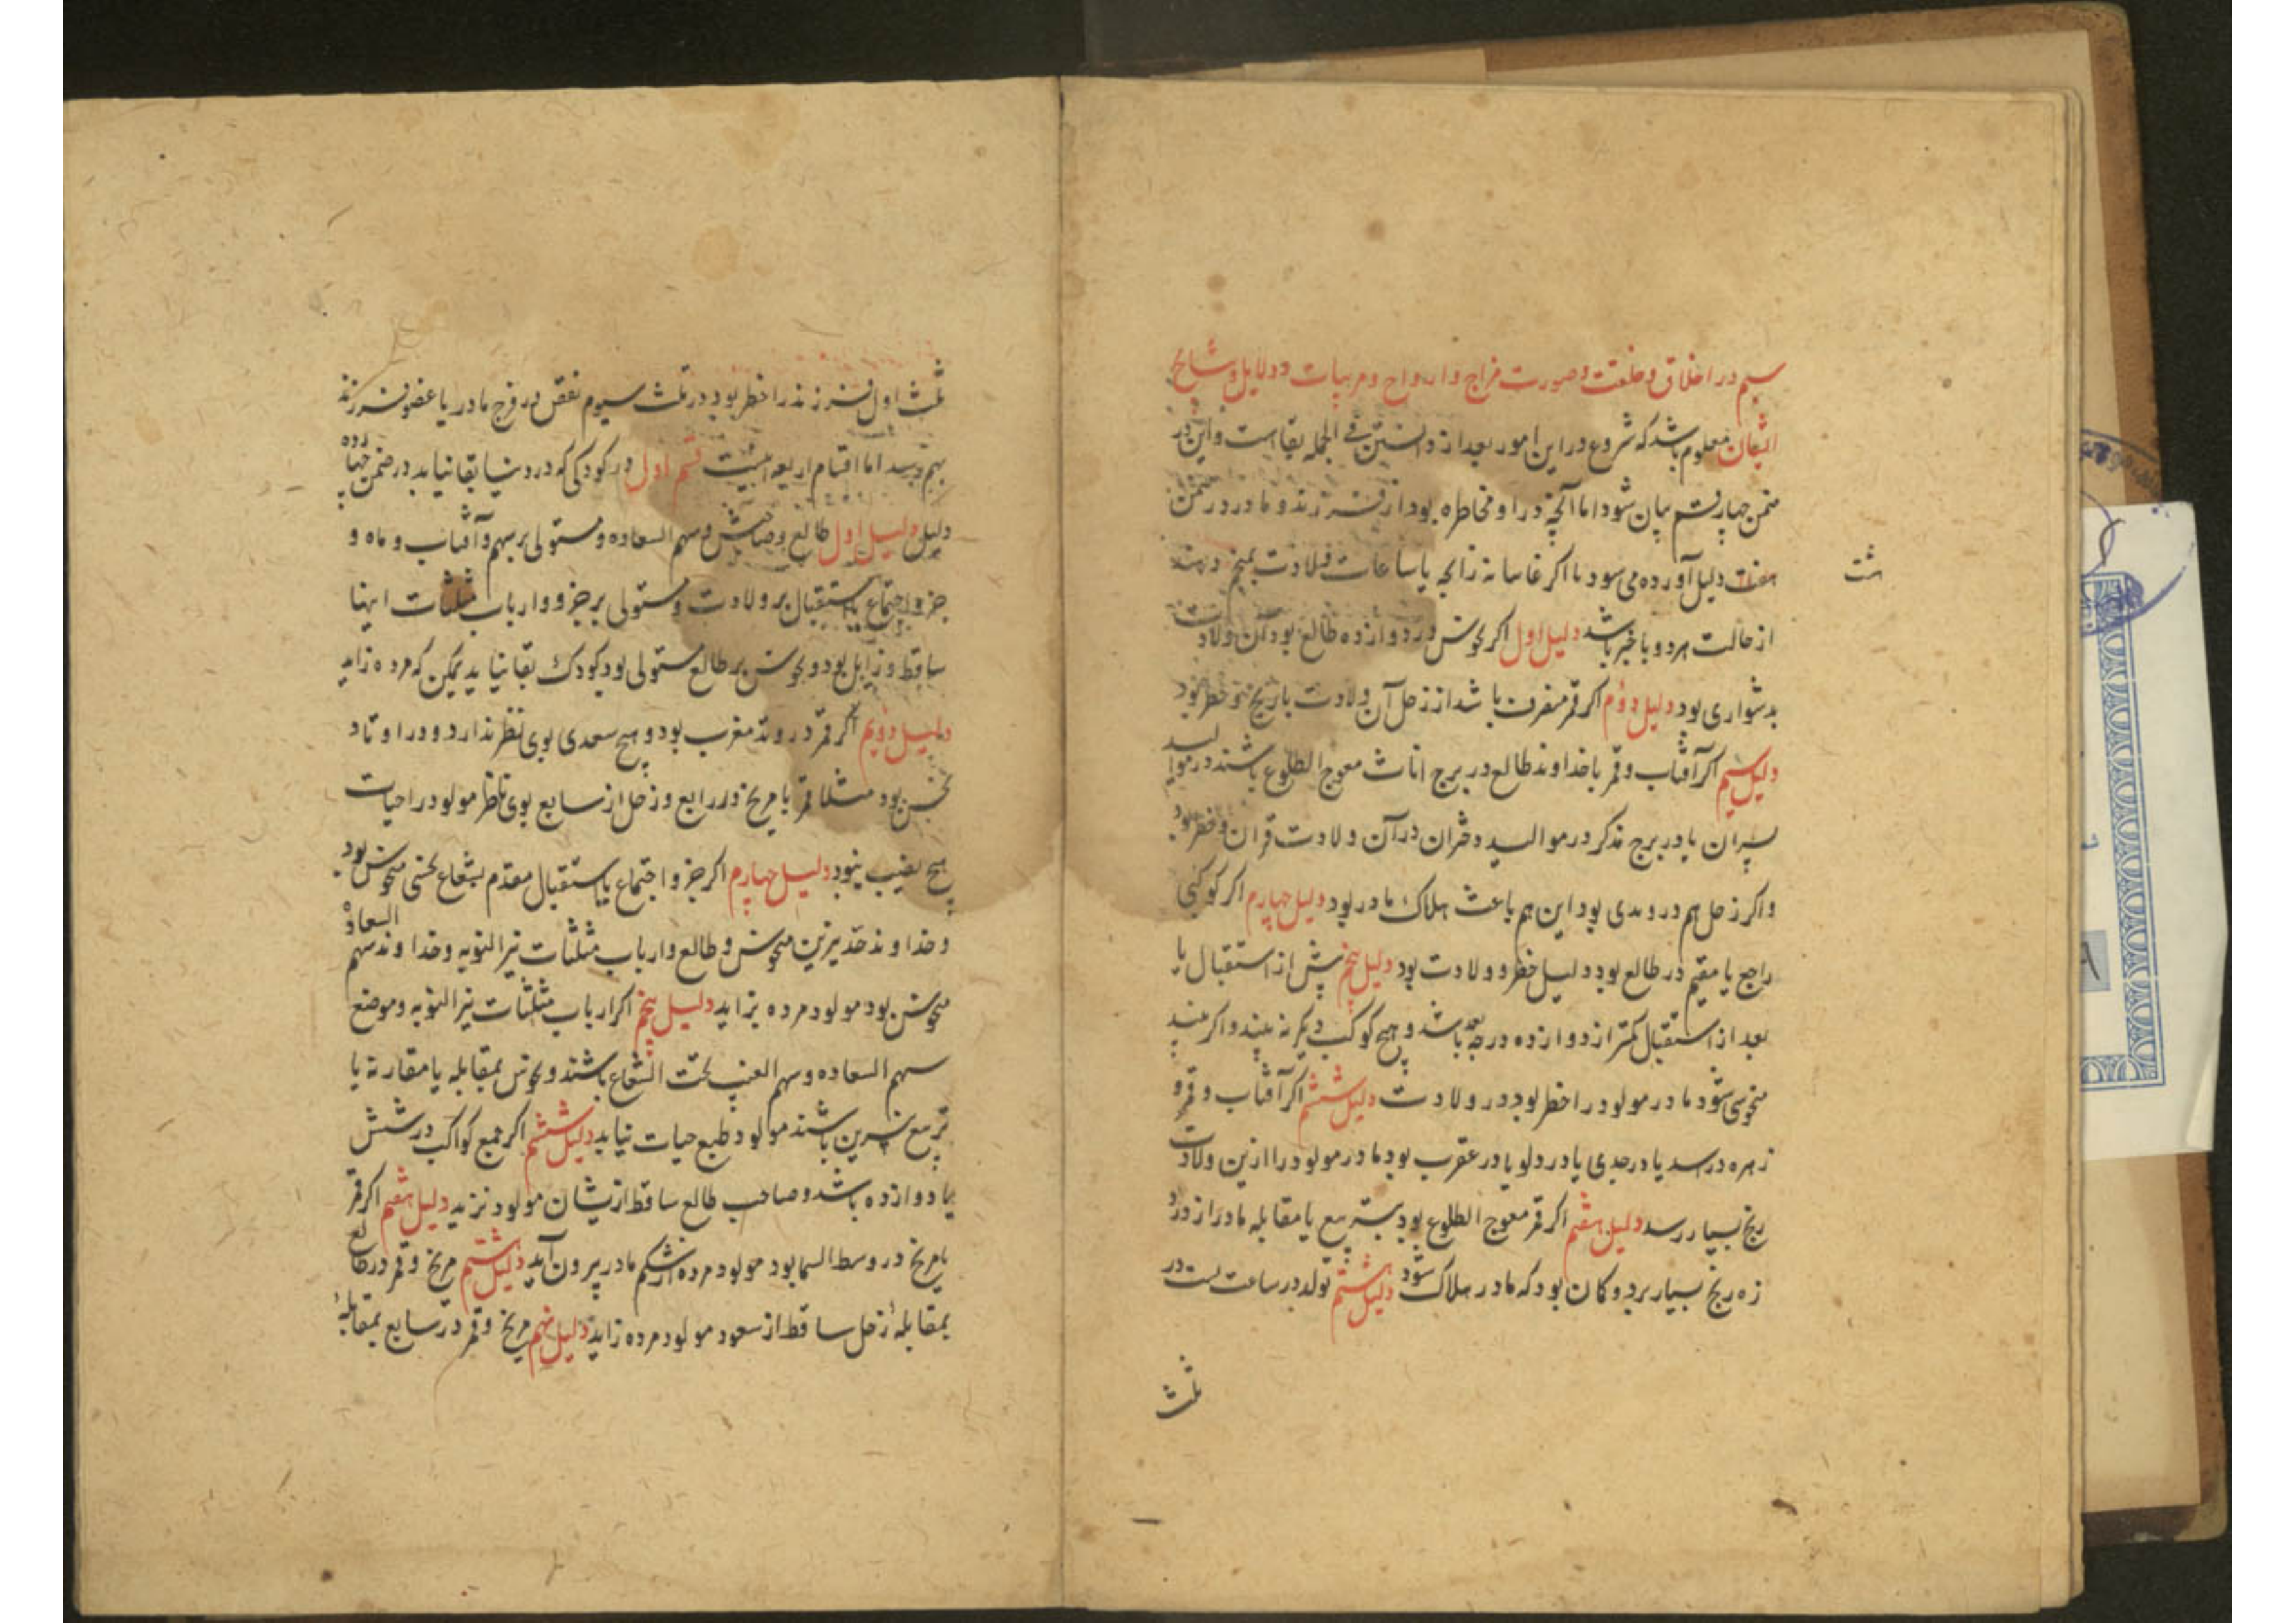 سیم در اخلاق و خلقت و صورت مزاج و ارواح و مربیات و دلایل و نتایج
ایشان معلوم باشد که شروع در این امور بعد از دانستن فی الجمله بقا است و این در
ضمن چهار قسم بیان شود اما آنچه در او مخاطره بود از فرزند و مادر در ضمن
هفت دلیل آورده می شود تا اگر غایبانه زایجه یا ساعات ولادت بمنجم دهند
هشت
از حالت هر دو با خبر باشد دلیل اول اگر نحوس در دوازده طالع بود آن ولادت
بدشواری بود دلیل دوم اگر قمر منصرف باشد از زحل آن ولادت با رنج و خطر بود
دلیل سیم اگر آفتاب و قمر با خداوند طالع در برج اناث معوج الطلوع باشند در موالید
پسران یا در برج مذکر در موالید دختران در آن ولادت قران و خطر بود
و اگر زحل هم در وبدی بود این هم باعث هلاک مادر بود دلیل چهارم اگر کوکبی
راجع یا مقیم در طالع بود دلیل خطر و ولادت بود دلیل پنجم پیش از استقبال یا
بعد از استقبال کمتر از دوازده درجه بعد باشد و هیچ کوکب دیگر نه بیند و اگر بیند
منحوسی شود مادر مولود را خطر بود در ولادت دلیل ششم اگر آفتاب و قمر و
زهره در اسد یا در جدی یا در دلو یا در عقرب بود مادر مولود را ازین ولادت
رنج بسیار رسد دلیل هفتم اگر قمر معوج الطلوع بود بتربیع یا مقابله مادر از درد
زه رنج بسیار برد و کان بود که مادر هلاک شود دلیل هشتم تولد در ساعت لست در
ثلث
ثلث اول فرزند را خطر بود در ثلث سیوم نقص در فرج مادر یا عضو فرزند
بهم رسد اما اقسام اربعه اینست قسم اول در کودکی که در دنیا بقا نیابد در ضمن چهارده
دلیل دلیل اول طالع و صاحبش و سهم السعاده و مستولی بر سهم و آفتاب و ماه و
جزو اجتماع یا استقبال بر ولادت و مستولی بر جزو و ارباب مثلثات اینها
ساقط و زایل بود و نحوس بر طالع مستولی بود کودک بقا نیابد یمکن که مرده زاید
دلیل دویم اگر قمر در وتد مغرب بود و هیچ سعدی بوی نظر ندارد و در اوتاد
نحسن بود مثلا قمر یا مریخ در رابع و زحل از سابع بوی ناظر مولود را حیات
هیچ نصیب نبود دلیل چهارم اگر جزو اجتماع یا استقبال مقدم بشعاع نحسی منحوس بود
و خداوند حد نیرین منحوس و طالع و ارباب مثلثات نیر النوبه و خداوند سهم السعاده
منحوس بود مولود مرده بزاید دلیل پنجم اگر ارباب مثلثات نیر النوبه و موضع
سهم السعاده و سهم الغیب تحت الشعاع باشند و نحوس بمقابله یا مقارنه یا
تربیع نیرین باشند مولود طبع حیات نیابد دلیل ششم اگر جمع کواکب در شش
یا دوازده باشد و صاحب طالع ساقط از یشان مولود نزید دلیل هفتم اگر قمر
با مریخ در وسط السما بود مولود مرده از شکم مادر بیرون آید دلیل هشتم مریخ و قمر در طالع
بمقابلهٔ زحل ساقط از سعود مولود مرده زاید دلیل نهم مریخ و قمر در سابع بمقابلهٔ